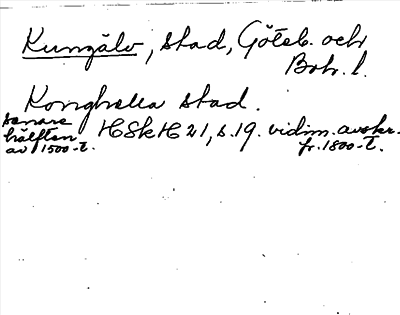 Kungälv, stad, Göteb. och
Boh. l.
Konghella stad.
senare
hälften
av 1500-t.
HSkH 21, s. 19. vidim. avskr.
fr. 1800-t.